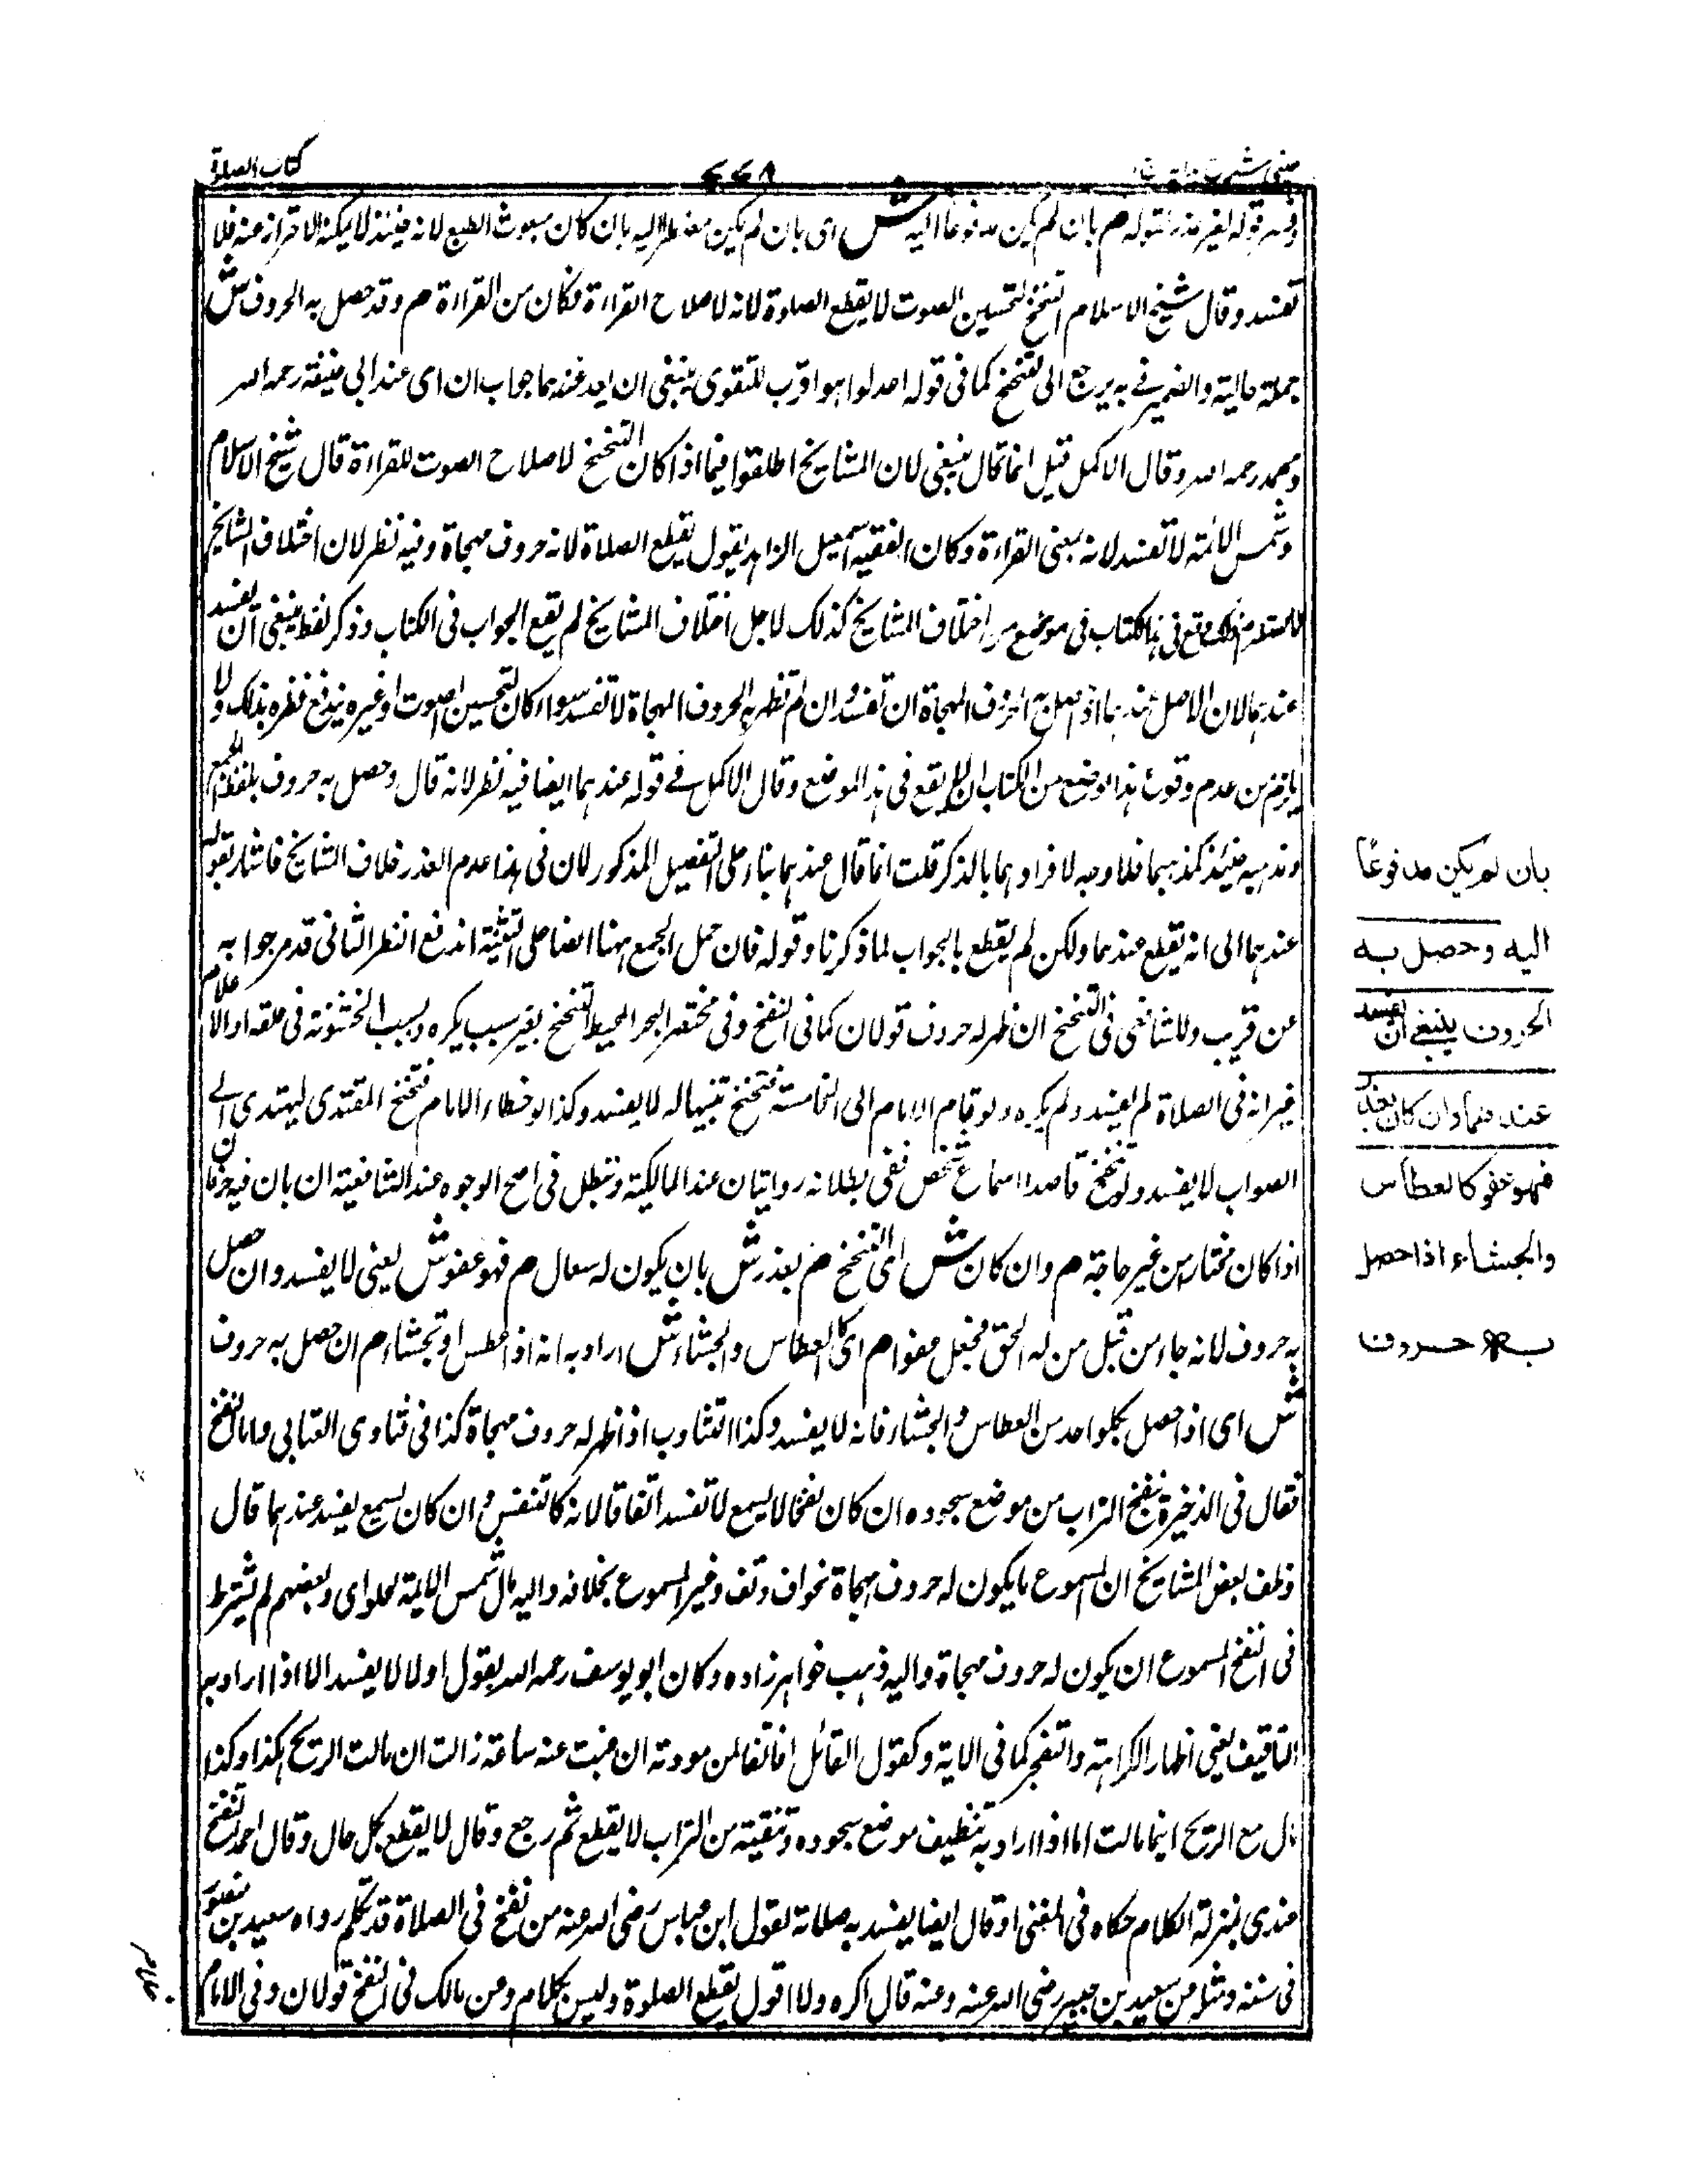 كتاب الصلوة
٧٧٨
وفسر قوله لغير عذر بقوله م بان لم يكن مدفوعا اليه ش اى بان لم يكن مضطرا اليه بان كان مبعوث الطبع لانه حينئذ لا يمكنه الاحتراز عنه فلا
تفسد وقال شيخ الاسلام التنحنح لتحسين الصوت لا يقطع الصلوة لانه لاصلاح القراءة فكان من القراءة م وقد حصل به الحروف ش
جملة حالية والضمير فے به يرجع الى تنحنح كما فى قوله اعدلوا هو اقرب للتقوى ينبغى ان يعد عندهما جواب ان اى عند ابى حنيفة رحمه الله
ومحمد رحمه الله وقال الاكمل قيل انما قال ينبغى لان المشايخ اطلقوا فيما اذا كان التنحنح لاصلاح الصوت للقراءة قال شيخ الاسلام
وشمس الائمة لا تفسد لانه بمعنى القراءة وكان الفقيه اسمعيل الزاهد يقول يقطع الصلاة لانه حروف مهجاة وفيه نظر لان اختلاف المشايخ
فى موضع من اختلاف المشايخ كذلك لاجل اختلاف المشايخ لم يقع الجواب فى الكتاب وذكر لفظ ينبغى ان تفسد
عندهما لان الاصل عندهما اذا حصل به الحروف المهجاة ان تفسد وان لم تظهر به الحروف المهجاة لا تفسد سواء كان لتحسين الصوت او غيره يندفع نظره بذلك ولا
يلزم من عدم وقوع هذا الوضع من الكتاب ان لا يقع فى هذا الموضع وقال الاكمل فے قوله عندهما ايضا فيه نظر لانه قال وحصل به حروف بلفظ الجمع
ومذهبه حينئذ كمذهبهما فلا وجه لافرادهما بالذكر قلت انما قال عندهما بناء على التفصيل المذكور لان فى هذا عدم العذر خلاف المشايخ فاشار بقوله
عندهما الى انه يقطع عندهما ولكن لم يقطع بالجواب لما ذكرنا وقوله فان حمل الجمع ههنا ايضا على التثنية اندفع النظر الثانى قد مر جوابه
عن قريب وللشافعى فى التنحنح ان ظهر له حروف قولان كما فى النفخ وفى مختصر البحر المحيط التنحنح بغير سبب يكره وبسبب الخشونة فى حلقه او الاعلام
غيرانه فى الصلاة لم يفسد ولم يكره ولو قام الامام الى الخامسة فتنحنح تنبيها له لا يفسد وكذا لو خطاء الامام فتنحنح المقتدى ليهتدى الے
الصواب لا يفسد ولو تنحنح قاصدا اسماع شخص ففى بطلانه روايتان عند المالكية وتبطل فى اصح الوجوه عند الشافعية ان بان فيه حرفان
اذا كان مختارا من غير حاجة م وان كان ش اى التنحنح م بعذر ش بان يكون له سعال م فهو عفو ش يعنى لا يفسد وان حصل
به حروف لانه جاء من قبل من له الحق فجعل عفوا م اى كالعطاس والجشاء ش اراد به انه اذا عطس او تجشاء م ان حصل به حروف
ش اى اذا حصل بكل واحد من العطاس والجشاء فانه لا يفسد وكذا التثاوب اذا ظهر له حروف مهجاة كذا فى فتاوى العتابى واما النفخ
فقال فى الذخيرة نفخ التراب من موضع سجوده ان كان نفخا لا يسمع لا تفسد اتفاقا لانه كالتنفس وان كان يسمع يفسد عندهما قال
وظف بعض المشايخ ان المسموع ما يكون له حروف مهجاة نحو اف وتف وغير المسموع بخلافه واليه مال شمس الايمة الحلوائى وبعضهم لم يشترط
فى النفخ المسموع ان يكون له حروف مهجاة واليه ذهب خواهر زاده وكان ابو يوسف رحمه الله يقول اولا لا يفسد الا اذا اراد به
التافيف يعنى اظهار الكراهة والتضجر كما فى الاية وكقول القائل افا تفا لمن مودته ان غبت عنه ساعة زالت ان مالت الريح هكذا وكذا
مال مع الريح اينما مالت اما اذا اراد به تنظيف موضع سجوده وتنقيته من التراب لا يقطع ثم رجع وقال لا يقطع بكل حال وقال احمد النفخ
عندى بمنزلة الكلام حكاه فى المغنى وقال ايضا يفسد به صلاته لقول ابن عباس رضى الله عنه من نفخ فى الصلاة قد تكلم رواه سعيد بن منصور
فى سننه ومثله من سعيد بن جبير رضى الله عنه وعنه قال اكره ولا اقول يقطع الصلوة وليس بكلام وعن مالك فى النفخ قولان وفى الامام
بان لم يكن مدفوعًا
اليه وحصل به
الحروف ينبغے ان تفسد
عندهما وان كان بعذر
فهو عفو كالعطاس
والجشاء اذا حصل
به حروف